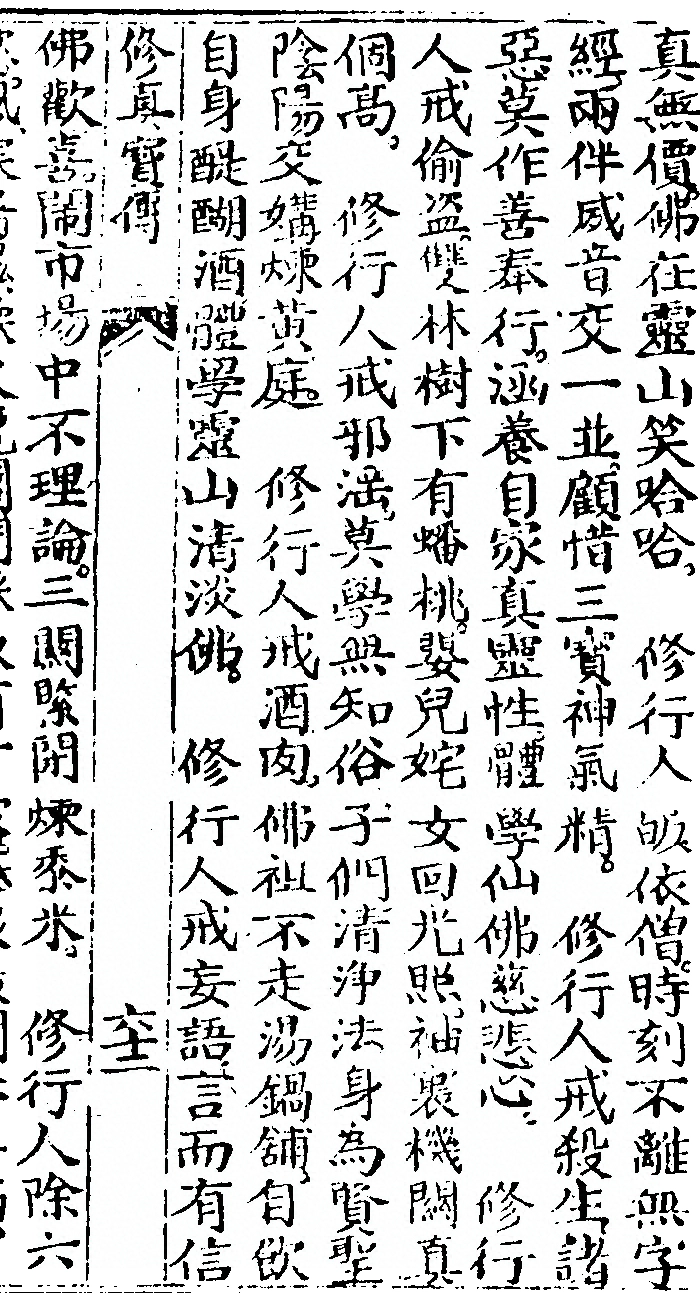 真無價。佛在靈山笑哈哈。　修行人皈依僧。時刻不離無字
經。兩件威音交一並。顧惜三寶神氣精。　修行人戒殺生。諸
惡莫作善奉行。涵養自家真靈性。體學仙佛慈悲心。　修行
人戒偷盜。雙林樹下有蟠桃。嬰兒姹女回光照。袖裏機關真
個高。　修行人戒邪淫。莫學無知俗子們。清淨法身為賢聖
陰陽交媾煉黃庭。　修行人戒酒肉。佛祖不走湯鍋舖。自飲
自身醍醐酒。體學靈山清淡佛。　修行人戒妄語。言而有信
修真寶傳　六十一
佛歡喜。鬧市場中不理論。三關緊閉煉黍米。　修行人除六